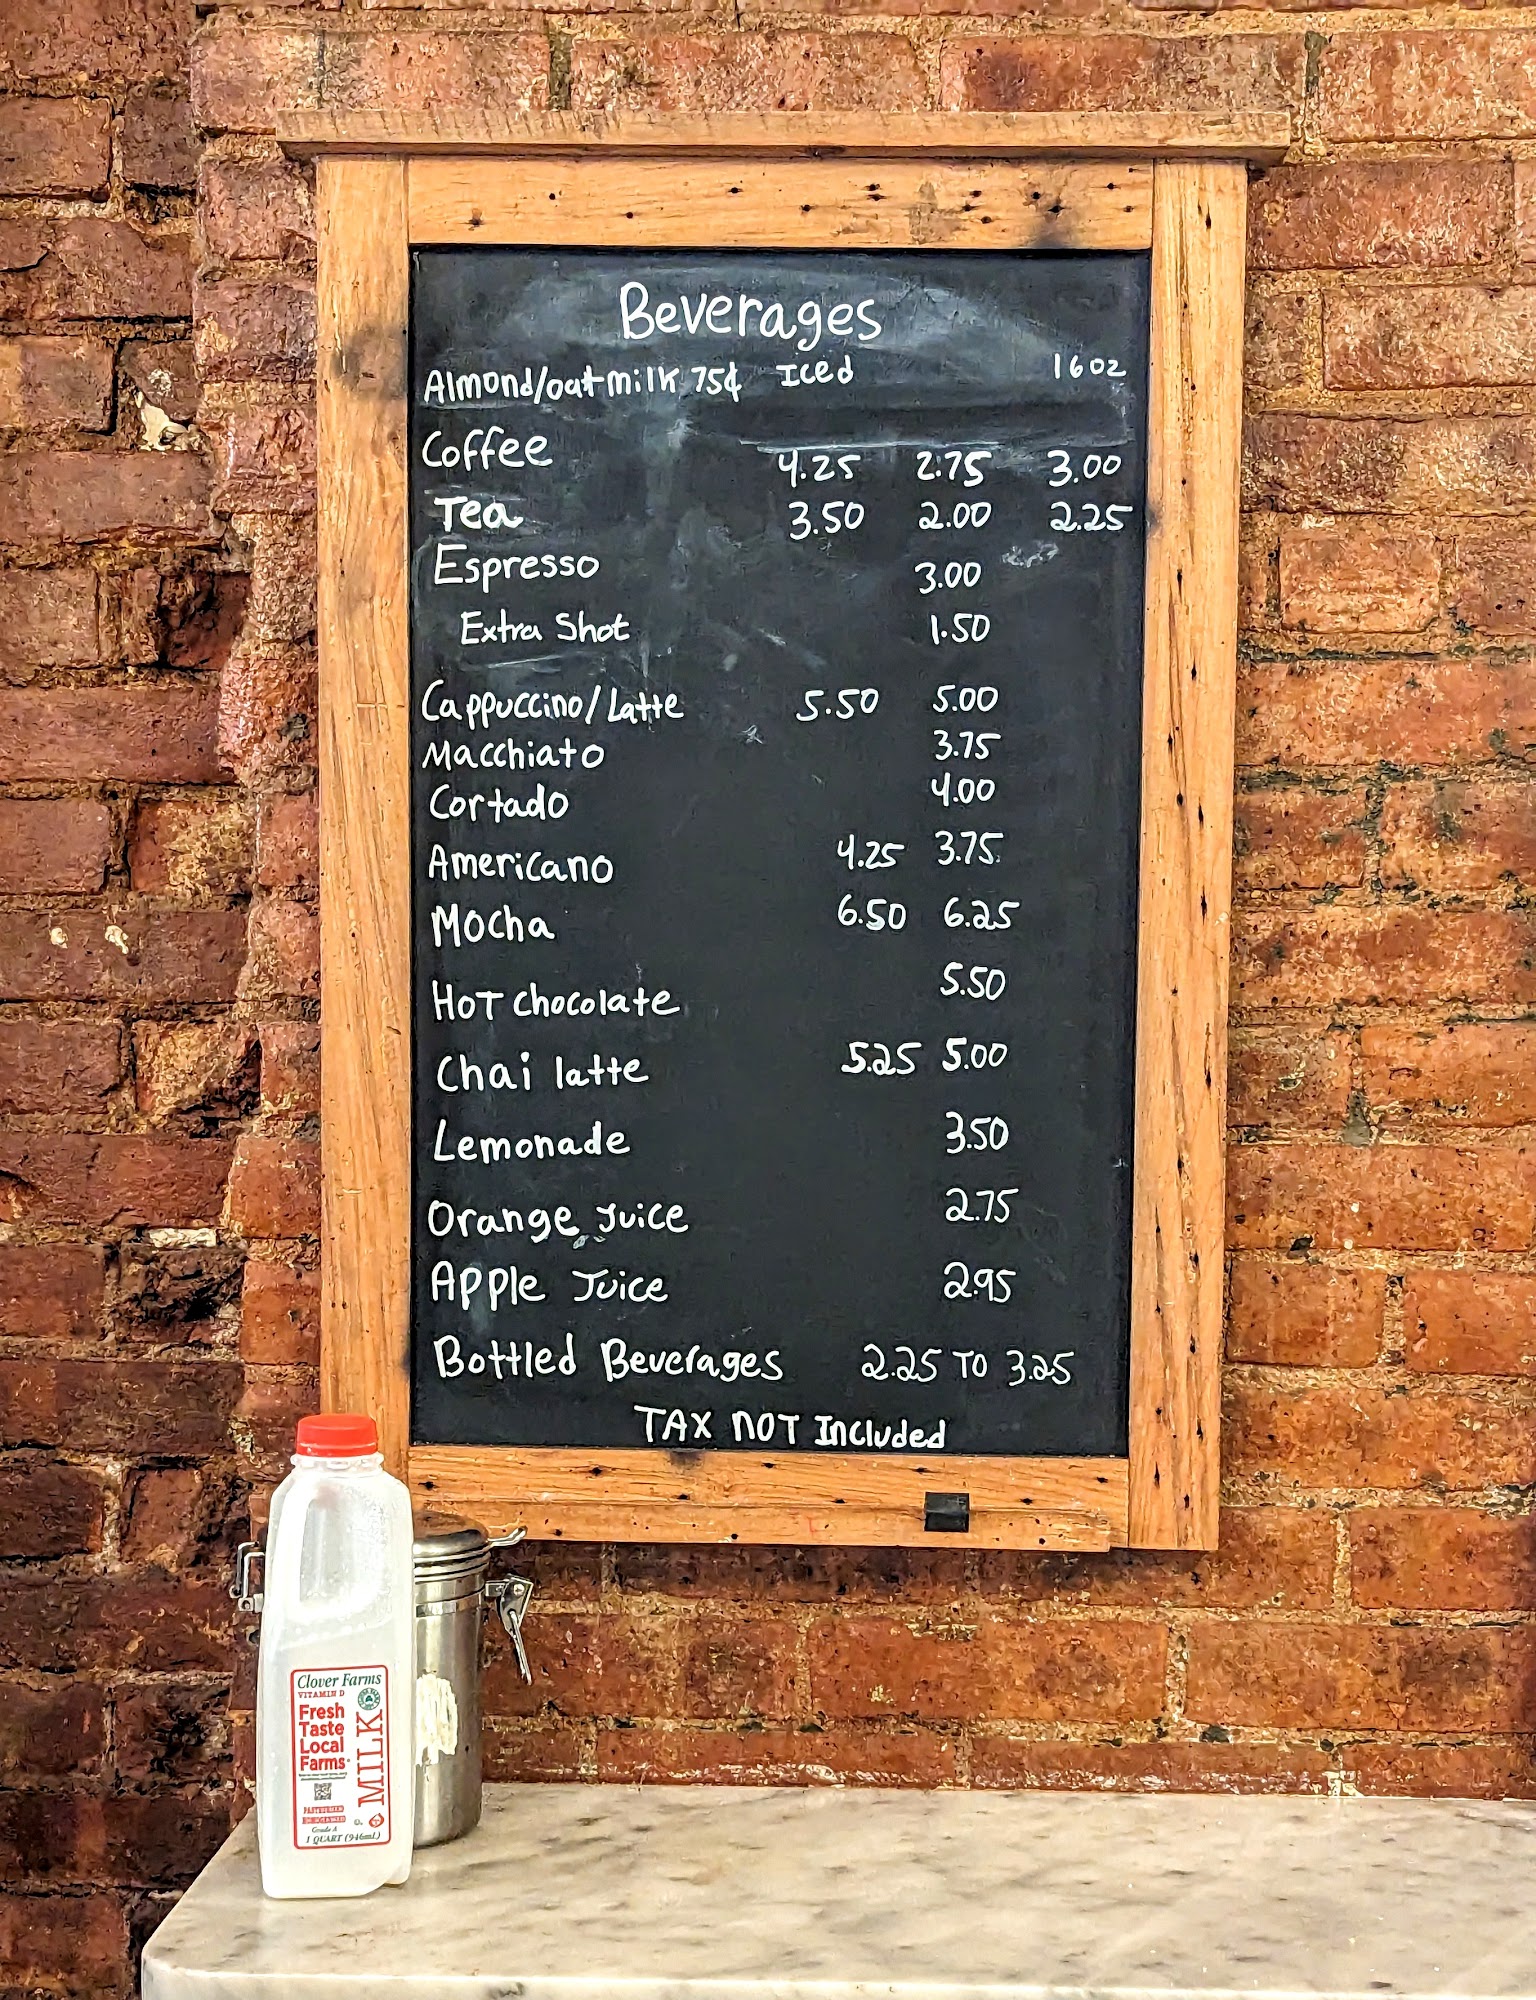 Beverages
Almond/oat milk 75¢ Iced 16oz
Coffee 4.25 2.75 3.00
Tea 3.50 2.00 2.25
Espresso 3.00
Extra Shot 1.50
Cappuccino/Latte 5.50 5.00
Macchiato 3.75
Cortado 4.00
Americano 4.25 3.75
Mocha 6.50 6.25
HoT chocolate 5.50
Chai latte 5.25 5.00
Lemonade 3.50
Orange Juice 2.75
Apple Juice 2.95
Bottled Beverages 2.25 TO 3.25
TAX NOT Included
Clover Farms
VITAMIN D
Fresh
Taste
Local
Farms
MILK
Grade A
1 QUART (946mL)